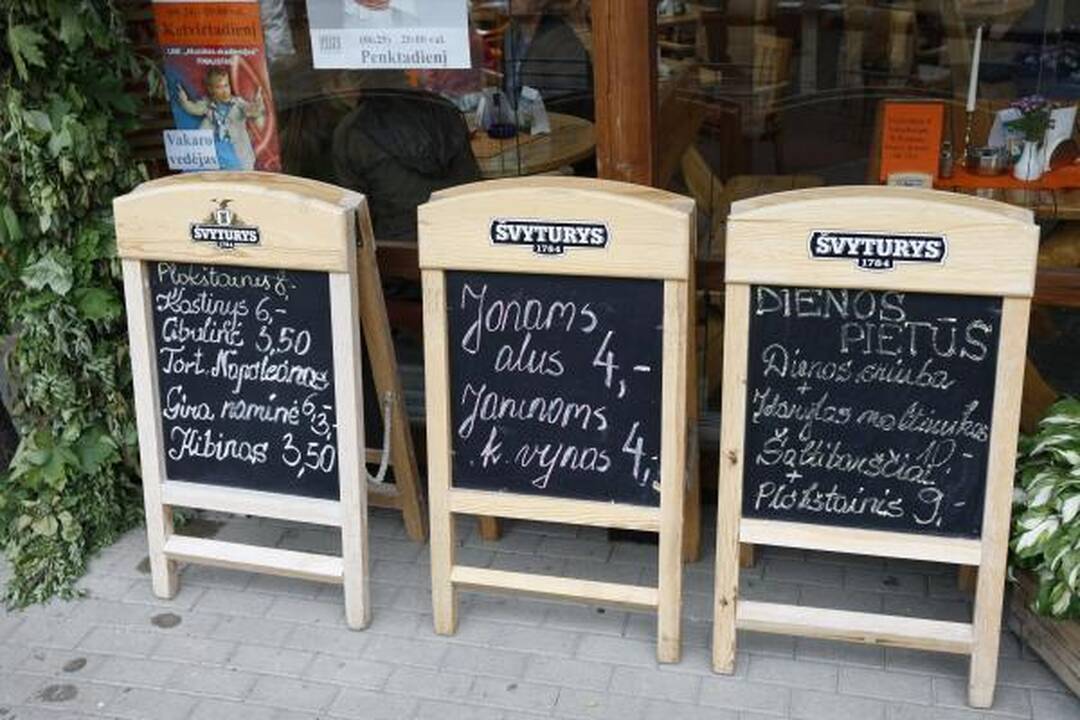 Ketvirtadienį
(06.25) 20:00 val.
Penktadienį
Vakaro
vedėjas
ŠVYTURYS
1784
Plokštainis 8,-
Kastinys 6,-
Cibulinė 3,50
Tort. Napoleonas
6,-
Gira naminė 3,-
Kibinas 3,50
ŠVYTURYS
1784
Jonams
alus 4,-
Janinoms
.k. vynas 4,-
ŠVYTURYS
1784
DIENOS
PIETŪS
Dienos sriuba
+
Įdarytas maltinukas
10,-
Šaltibarščiai
+
Plokštainis 9,-